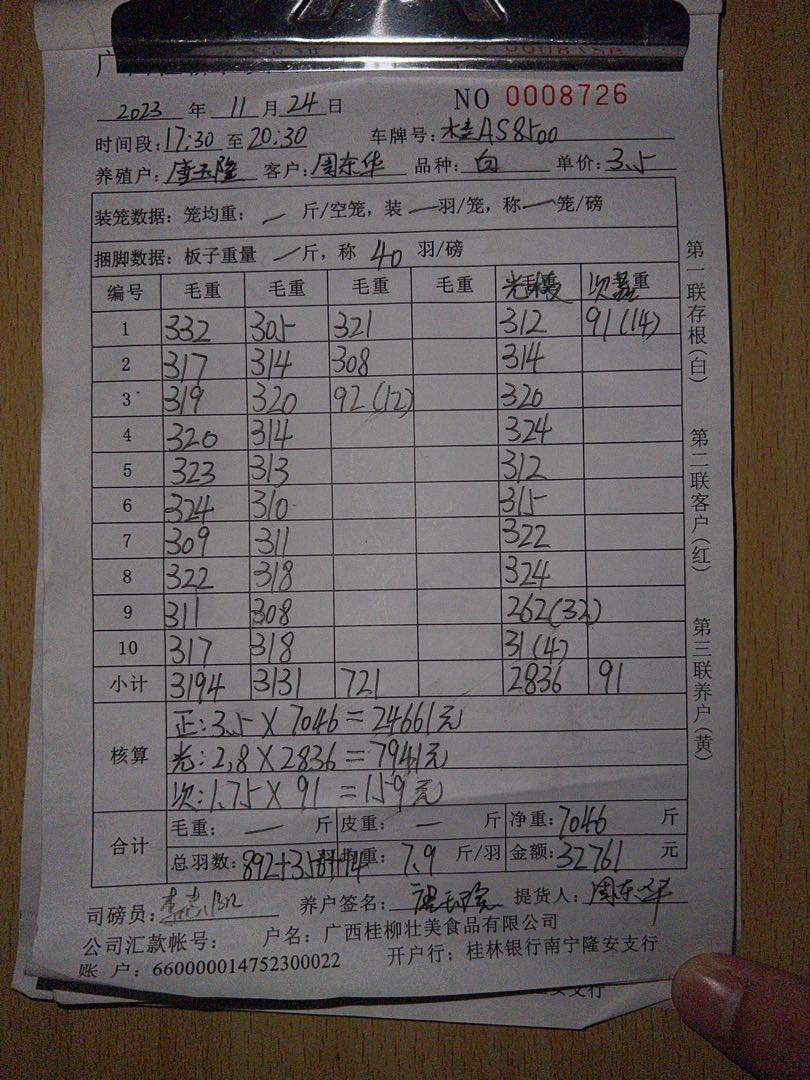 NO 0008726
2023 年 11 月 24 日
时间段: 17:30 至 20:30 车牌号: 桂AS8500
养殖户: 唐玉隆 客户: 周东华 品种: 白 单价: 3.5
装笼数据: 笼均重: — 斤/空笼, 装 — 羽/笼, 称 — 笼/磅
捆脚数据: 板子重量 — 斤, 称 40 羽/磅
编号 毛重 毛重 毛重 毛重 光 次 重
1 332 305 321 312 91(14)
2 317 314 308 314
3 319 320 92(12) 320
4 320 314 324
5 323 313 312
6 324 310 315
7 309 311 322
8 322 318 324
9 311 308 262(32)
10 317 318 31(4)
小计 3194 3131 721 2836 91
核算
正: 3.5 X 7046 = 24661元
光: 2.8 X 2836 = 7941元
次: 1.75 X 91 = 159元
合计
毛重: — 斤 皮重: — 斤 净重: 7046 斤
总羽数: 892+358+14 均重: 7.9 斤/羽 金额: 32761 元
司磅员: 养户签名: 唐玉隆 提货人: 周东华
公司汇款帐号: 户名: 广西桂柳壮美食品有限公司
账 户: 660000014752300022 开户行: 桂林银行南宁隆安支行
第一联存根(白)
第二联客户(红)
第三联养户(黄)